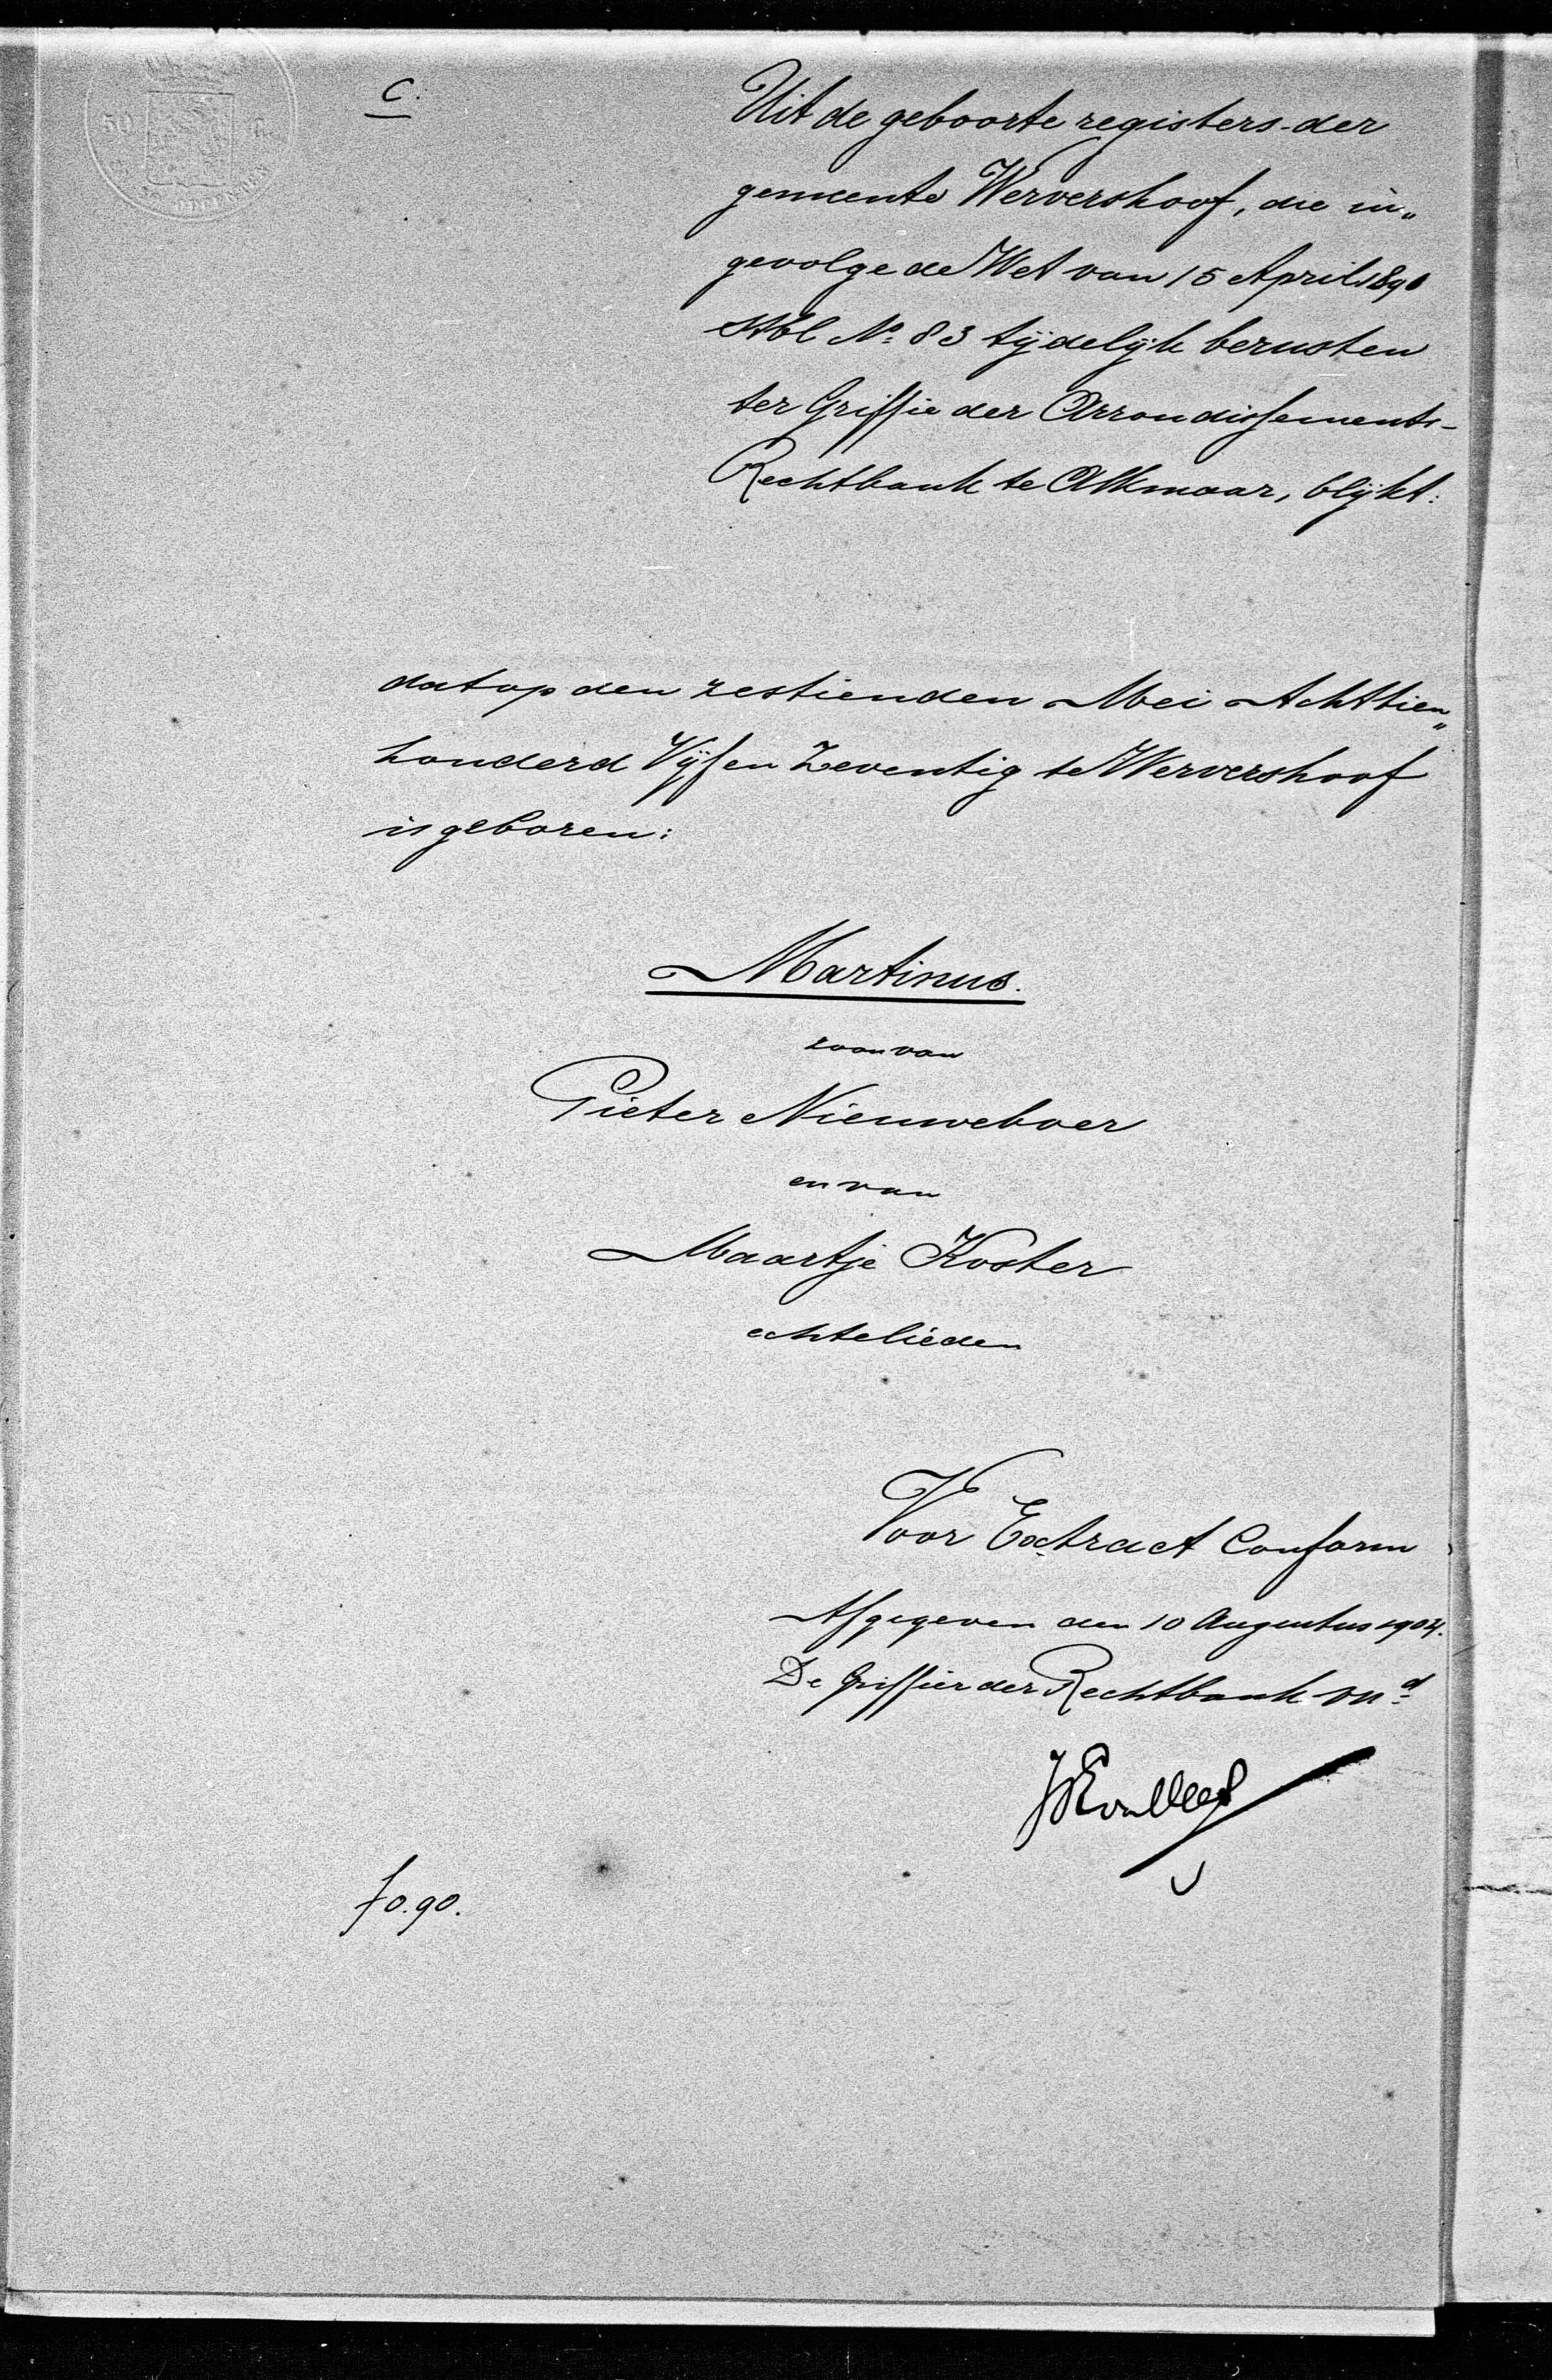 C.
Uit de geboorte registers der
gemeente Wervershoof, die in„
gevolge de Wet van 15 April 1890
Stbl No. 83 tijdelijk berusten
ter Griffie der Arrondissements-
Rechtbank te Alkmaar, blijkt:
dat op den zestienden Mei Achttien„
honderd Vijf en Zeventig te Wervershoof
is geboren:
Martinus.
zoon van
Pieter Nieuweboer
en van
Maartje Koster
echtelieden
Voor Extract Conform
Afgegeven den 10 Augustus 1904.
De Griffier der Rechtbank vnd
f 0.90.